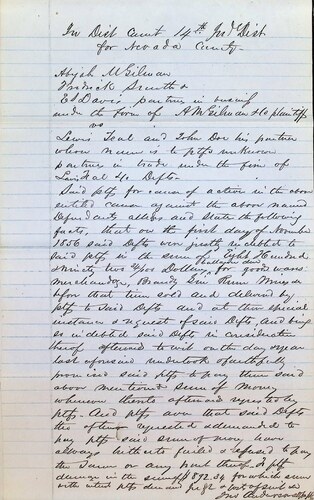 In Dist Court 14th Jud Dist
for Nevada County
Abijah M Gilman
Fredrick Smith &
E L Davis partners in business
under the firm of A M Gilman & Co plaintiffs
vs
Lewis Teal and John Doe his partner
whose name is to ptffs unknown
partners in trade under the firm of
Lewis Teal & Co Defts
Said ptffs for cause of action in the above
entitled cause against the above named
Defendants allege and state the following
facts, that on the first day of November
1856 said Defts were justly indebted to
said ptffs in the sum Eight Hundred
& ninety two 4/100 Dollars, for goods wares
Merchandize, Brandy Gin Rum
before that time sold and delivered by
ptffs to said Defts and at the special
instance & request of said Defts, and being
so indebted said Defts in consideration
thereof afterward to wit on the day & year
last aforesaid undertook & faithfully
promised said ptffs to pay them said
above mentioned sum of money
whenever thereto afterward requested by
ptffs. And ptffs aver that said Defts
tho often requested & demanded to
pay ptffs said sum of money have
always hitherto failed & refused to pay
the same or any part thereof to ptffs
damage in the sum of $892.04 for which sum
with interest ptffs demand & cost of suit
Anderson